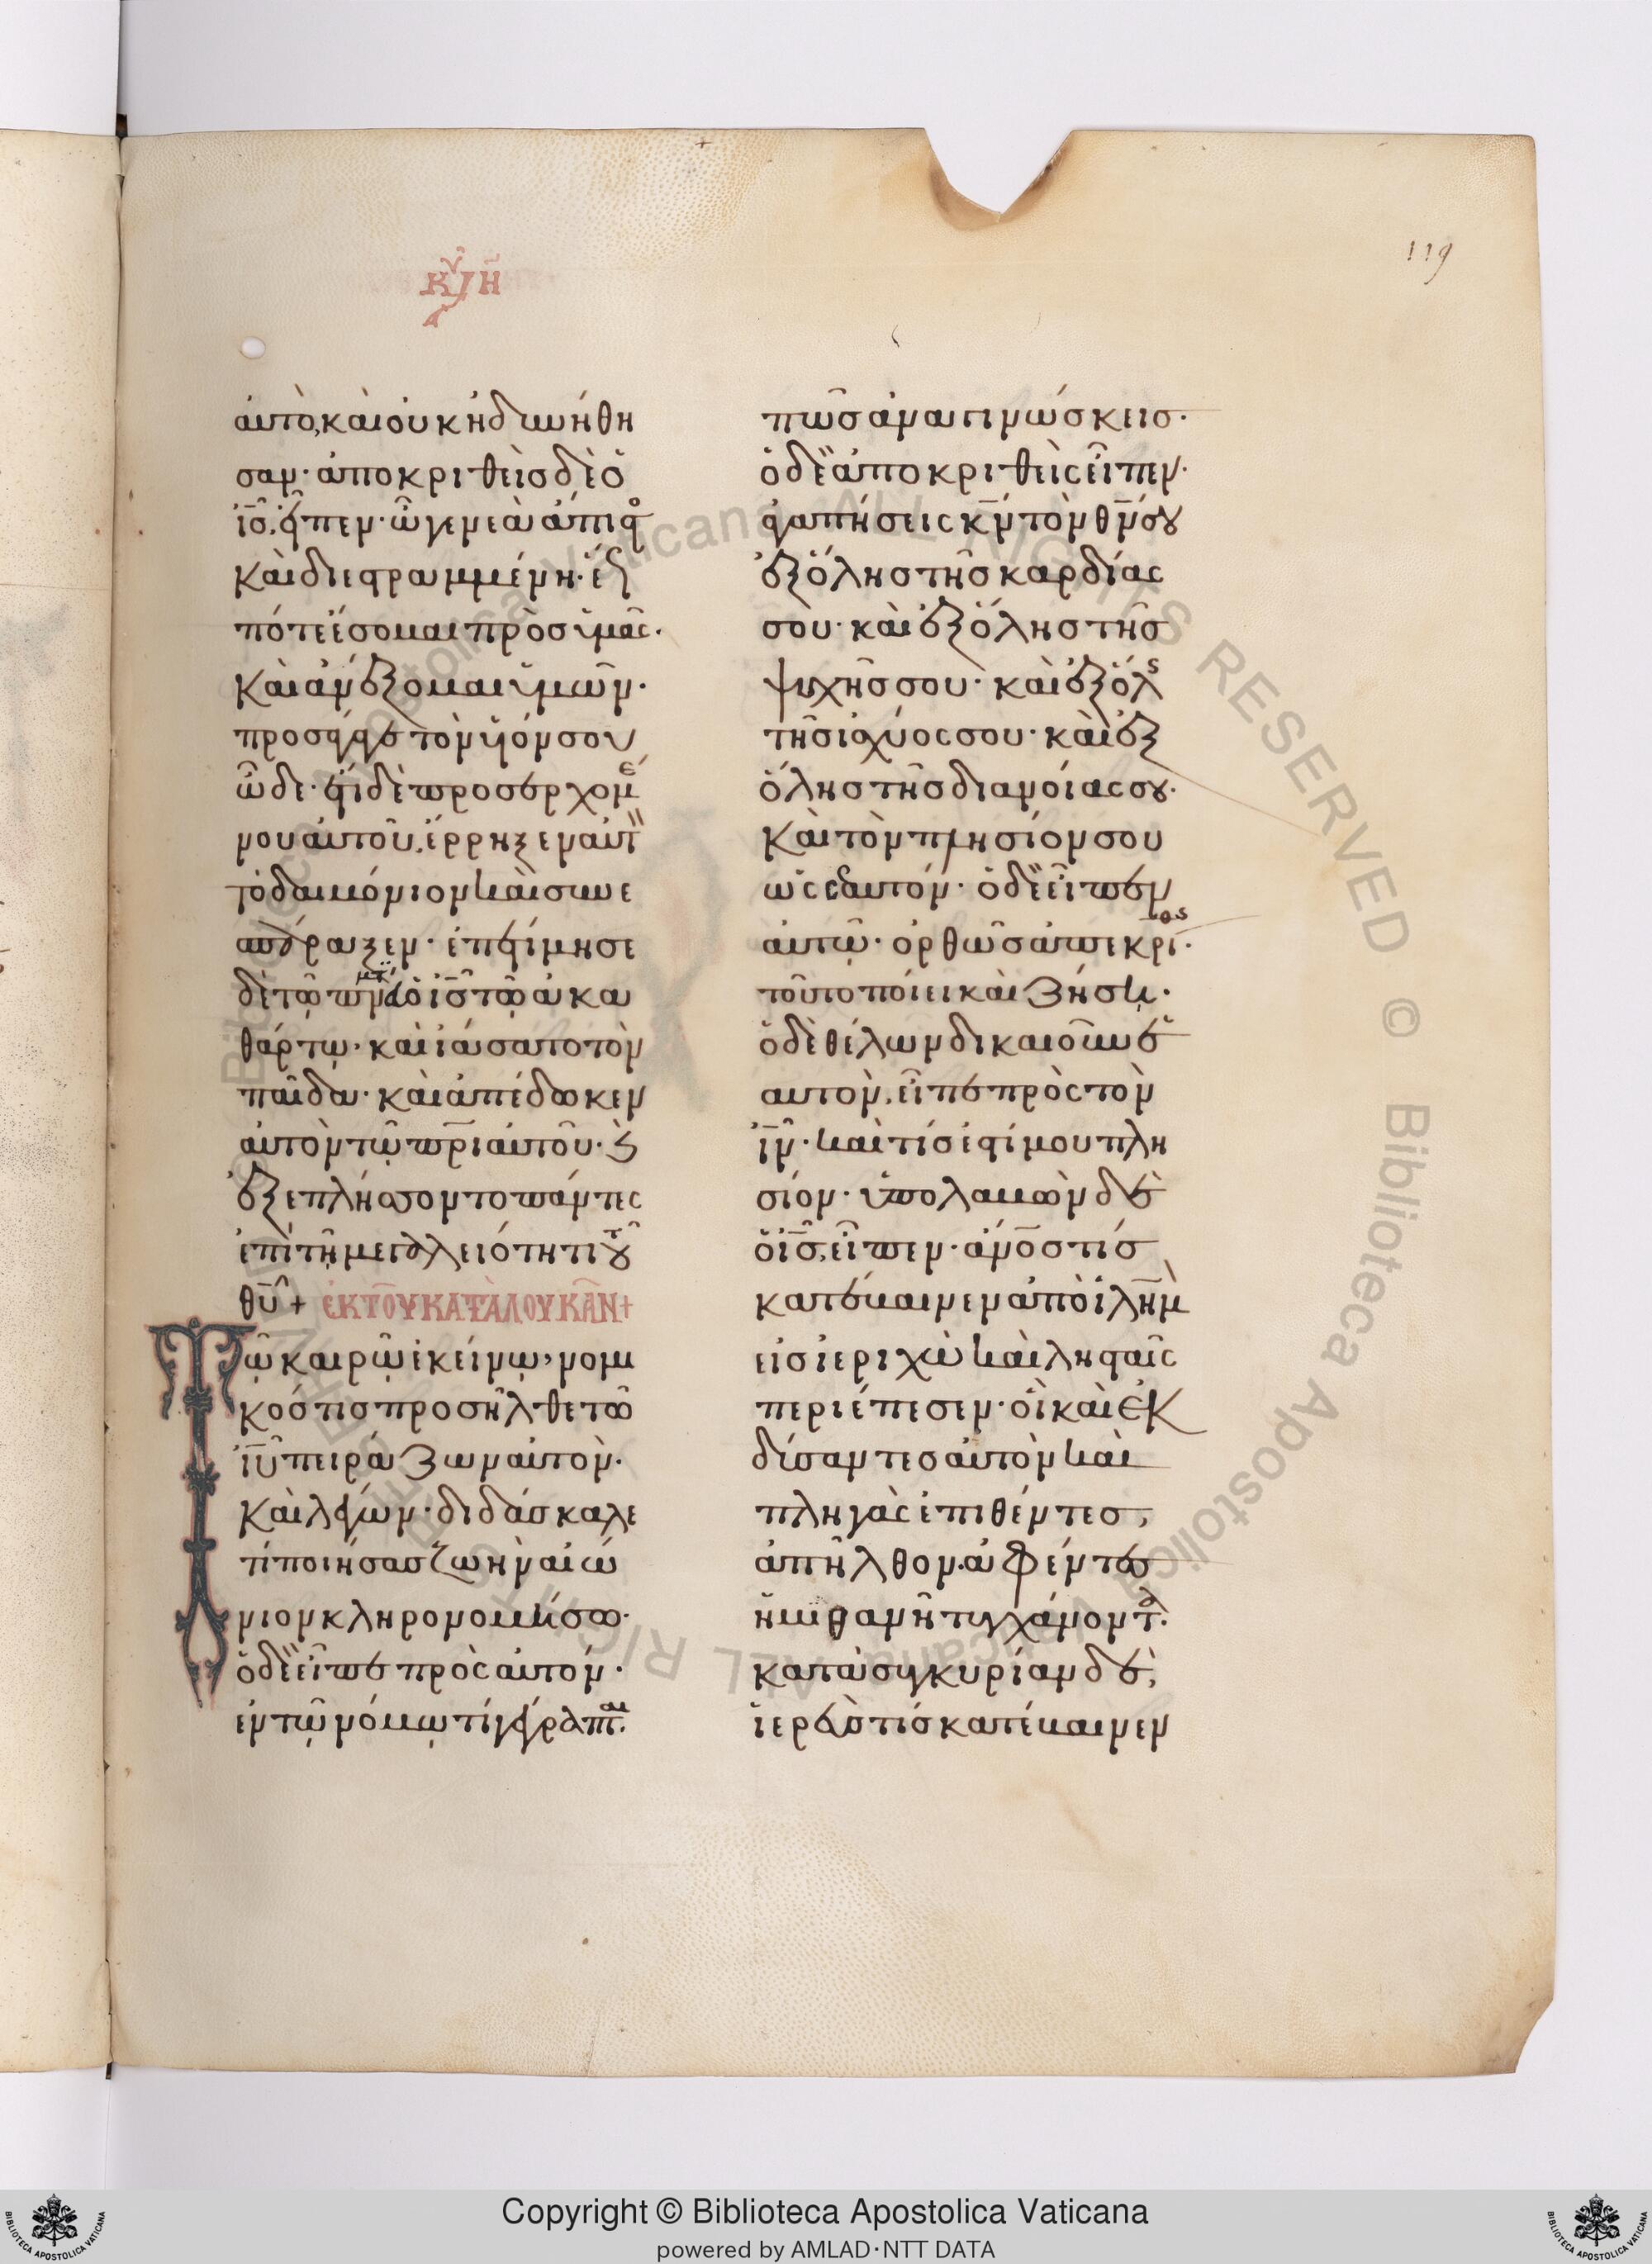 κυ η
119
αυτὸ, καὶ οὐκ ἠδυνήθη
σαν· ἀποκριθεὶς δὲ ὁ
ἰς̅, εἶπεν· ὦ γενεὰ ἄπιστο
καὶ διεστραμμένη· ἕως
πότε ἔσομαι πρὸς ὑμᾶς·
καὶ ἀνέξομαι ὑμῶν·
προσάγαγε τὸν υἱόν σου
ὧδε· ἔτι δὲ προσερχομέ
νου αὐτοῦ, ἔρρηξεν αὐτ
τὸ δαιμόνιον καὶ συνε
σπάραξεν· ἐπετίμησε
δὲ τῷ πνα̅τι ὁ ἰς̅ τῷ ἀκα
θάρτω· καὶ ἰάσατο τὸν
παῖδα· καὶ ἀπέδωκεν
αὐτὸν τῷ πρ̅ι αὐτοῦ· ϗ
ἐξεπλήσσοντο πάντες
ἐπὶ τῇ μεγαλειότητι τοῦ
θυ̅ + ἐκ τοῦ κατὰ λουκᾶν +
Τῷ καιρῷ ἐκείνῳ, νομι
κός τις προσῆλθε τῷ
ἰυ̅ πειράζων αὐτὸν·
καὶ λέγων· διδάσκαλε
τί ποιήσας ζωὴν αἰώ
νιον κληρονομήσω·
ὁ δὲ εἶπε πρὸς αὐτόν·
ἐν τῷ νόμῳ τί γέγραπται·
πῶς ἀναγινώσκεις·
ὁ δὲ ἀποκριθεὶς εἶπεν·
ἀγαπήσεις κν̅ τὸν θν̅ σου
ἐξ ὅλης τῆς καρδίας
σοὺ· καὶ ἐξ ὅλης τῆς
ψυχῆς σου· καὶ ἐξ ὅλης
τῆς ἰσχύος σου· καὶ ἐξ
ὅλης τῆς διανοίας σου·
καὶ τὸν πλησίον σου
ὡς εαυτόν· ὁ δὲ εἶπεν
αὐτῷ· ὀρθῶς ἀπεκρίθης·
τοῦτο ποίει καὶ ζήσῃ·
ὁ δὲ θέλων δικαιοῦν ἑ
αυτὸν, εἶπε πρὸς τὸν
ἰν̅· καὶ τίς ἐστί μου πλη
σίον· ὑπολαβὼν δὲ
ὁ ἰς̅, εἶπεν· ἄνο̅ς τίς
κατέβαινεν ἀπὸ ἰλη̅μ
εἰς ἱεριχὼ καὶ λησταῖς
περιέπεσεν· οἳ καὶ ἐκ
δύσαντες αὐτὸν καὶ
πληγὰς ἐπιθέντες,
ἀπῆλθον· ἀφέντες
ἡμιθανῆ τυγχάνοντα·
κατὰ συγκυρίαν δὲ,
ἱερεὺς τίς κατέβαινεν
Copyright © Biblioteca Apostolica Vaticana
powered by AMLAD·NTT DATA